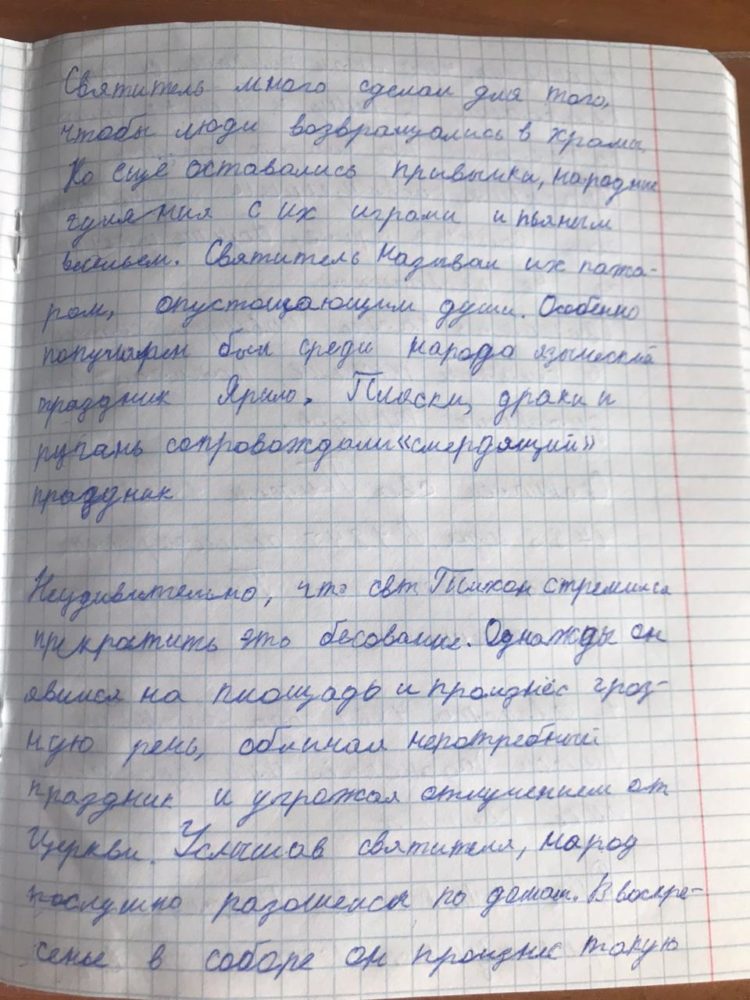 Святитель много сделал для того,
чтобы люди возвращались в храмы.
Но ещё оставались привычки, народные
гуляния с их играми и пьяным
весельем. Святитель называл их пожа-
ром, опустошающим души. Особенно
популярен был среди народа языческий
праздник Ярило. Пляски, драки и
ругань сопровождали «смердящий»
праздник
Неудивительно, что свт Тихон стремился
прекратить это бесование. Однажды он
явился на площадь и произнёс гроз-
ную речь, обличая непотребный
праздник и угрожая отлучением от
Церкви. Услышав святителя, народ
послушно разошелся по домам. В воскре-
сенье в соборе он произнес такую